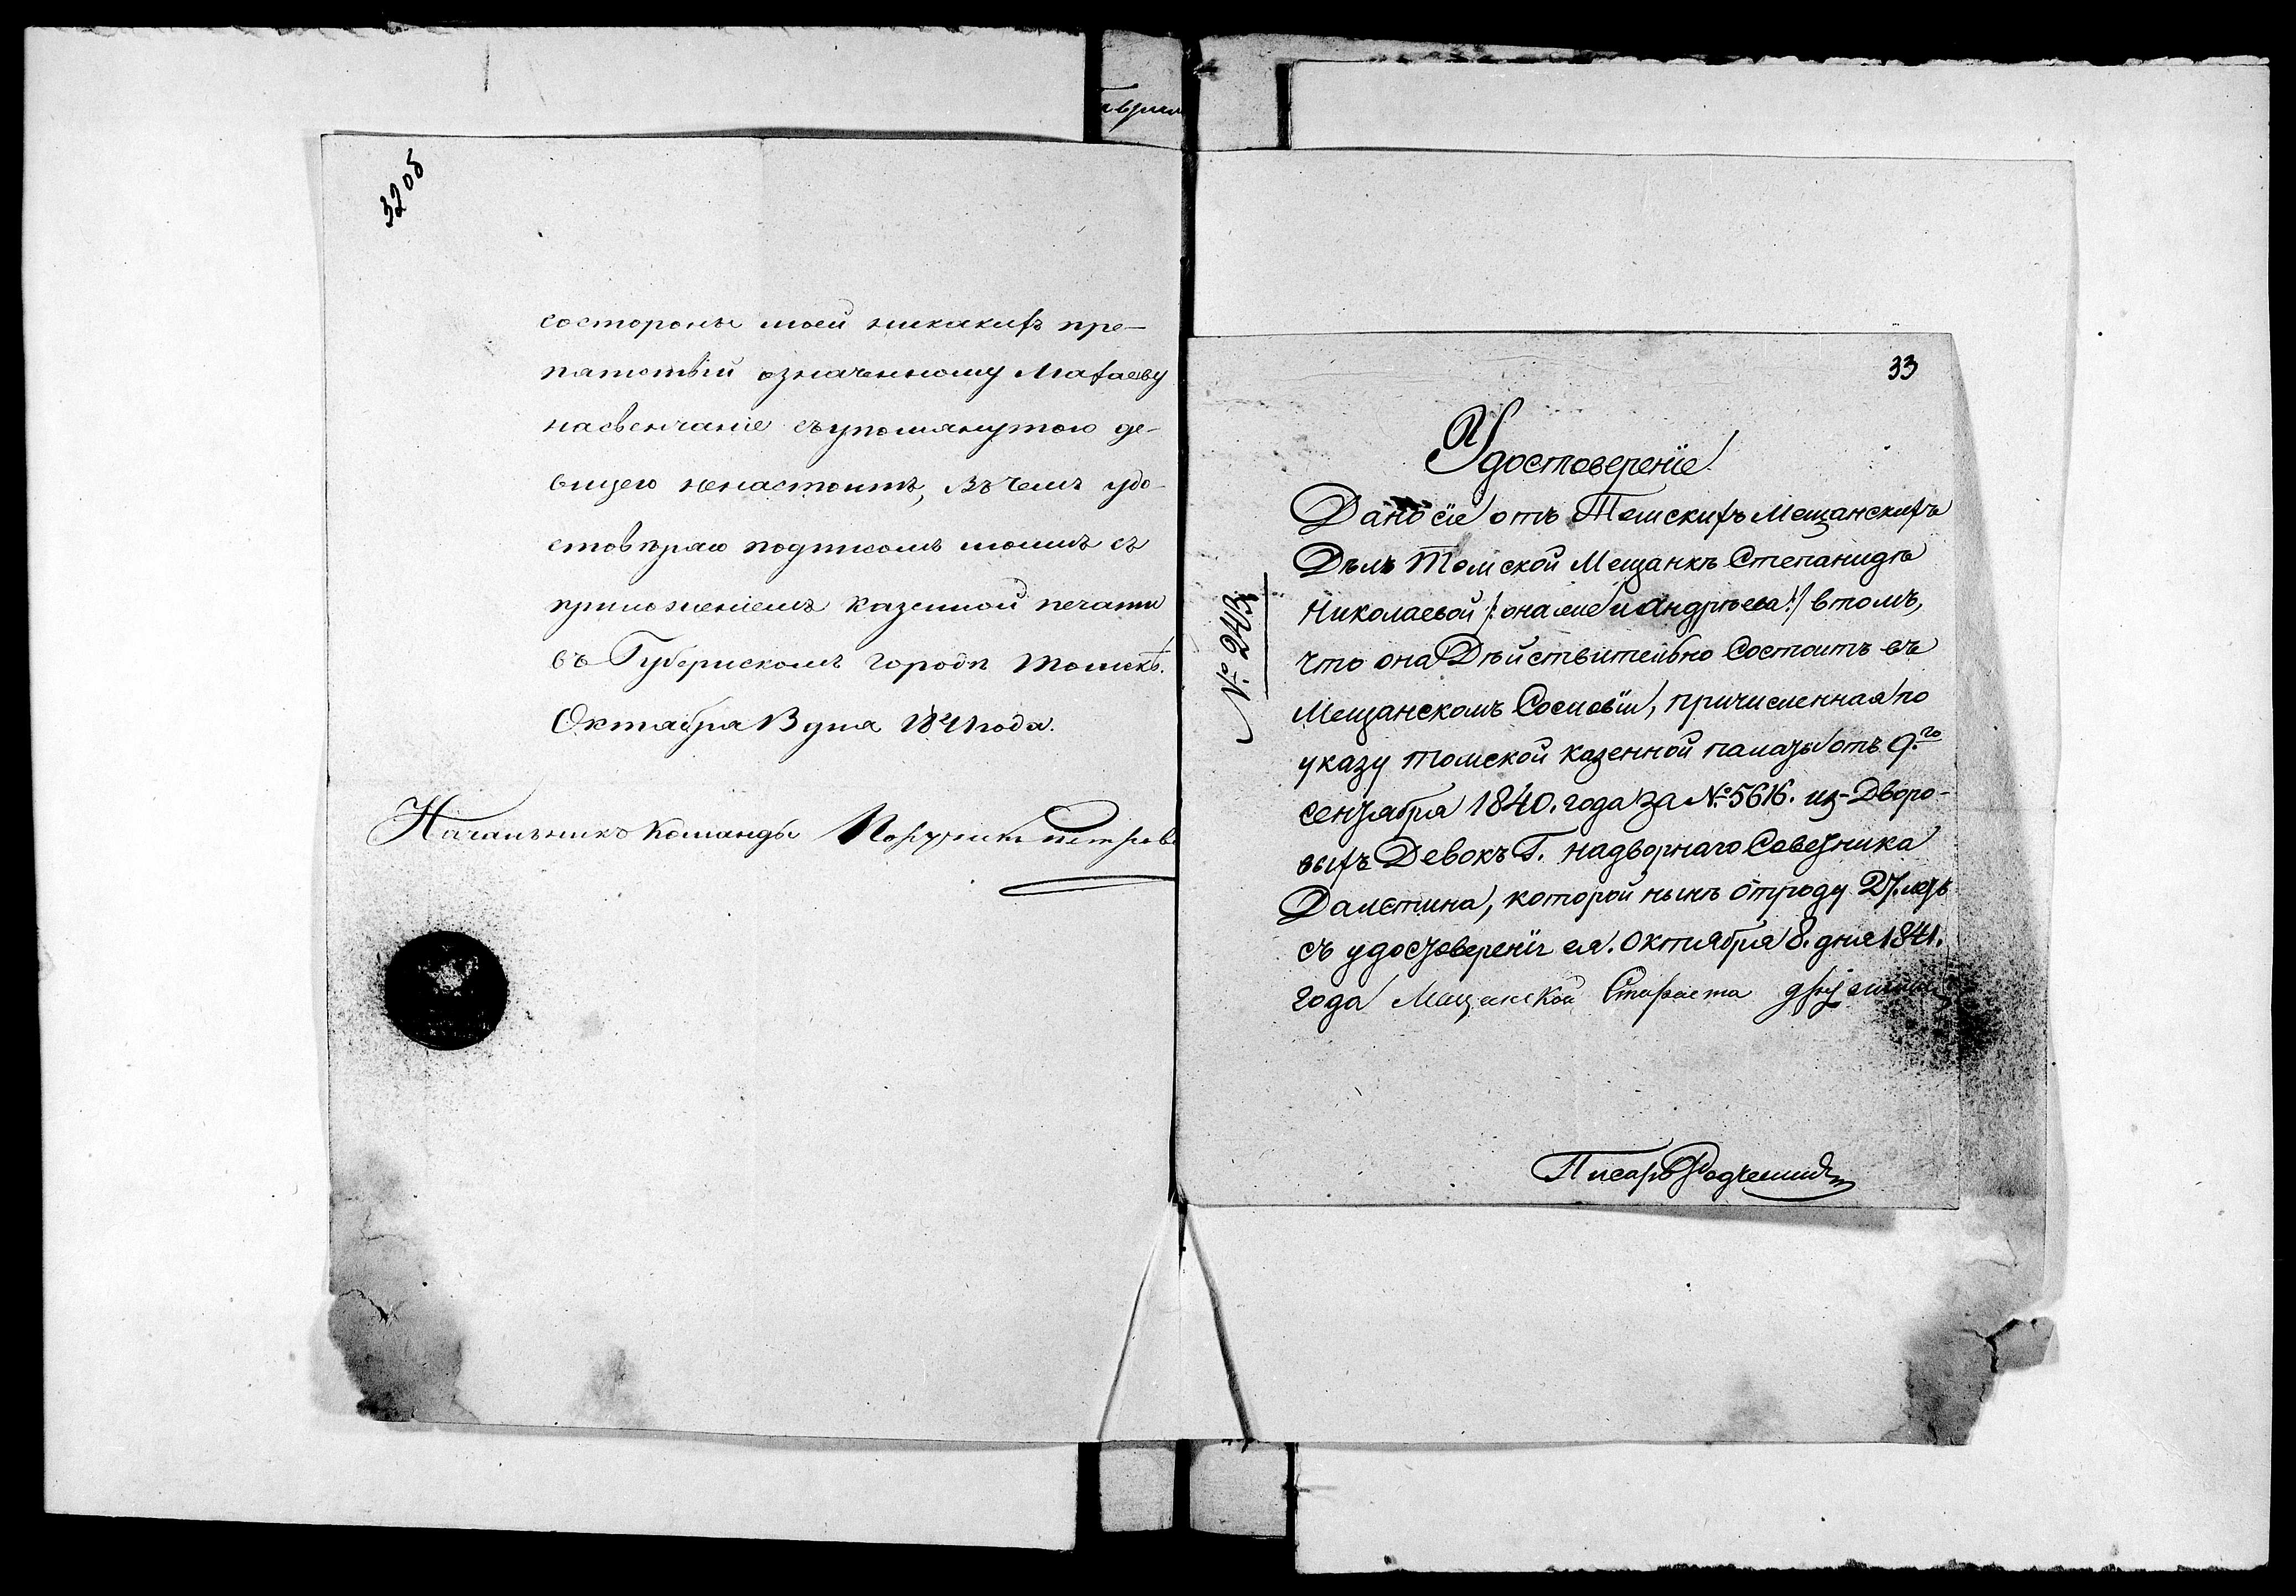 32об
состороны моей никакихъ пре-
пятствiй означенному Махаеву
насвенчанiе съупомянутою де-
вицею ненастоитъ, въ чемъ удо-
стовѣряю подписомъ моимъ съ
приложенiемъ казенной печати
въ Губернскомъ городѣ томскѣ.
Октября 13 дня 1841 года.
Начальникъ команды Поручикъ Петровъ
33
Удостоверенiе
№ 2403
Дано сiе отъ Томскихъ Мещанскихъ
Дѣлъ Томской Мещанкѣ Степанидѣ
Николаевой /: онаже и Андрѣева :/ втомъ,
что она Дѣйствительно Состоитъ въ
Мещанскомъ Сословiи, причисленная по
указу томской казенной палаты отъ 9.го
сентября 1840. года за № 5616. из-Дворо-
выхъ Девокъ Г. надворнаго Советника
Далстина, которой нынѣ отроду 27. летъ
съ удостоверенiи ея. Октября 8. дня 1841.
года Мещанской Стараста
Писарь